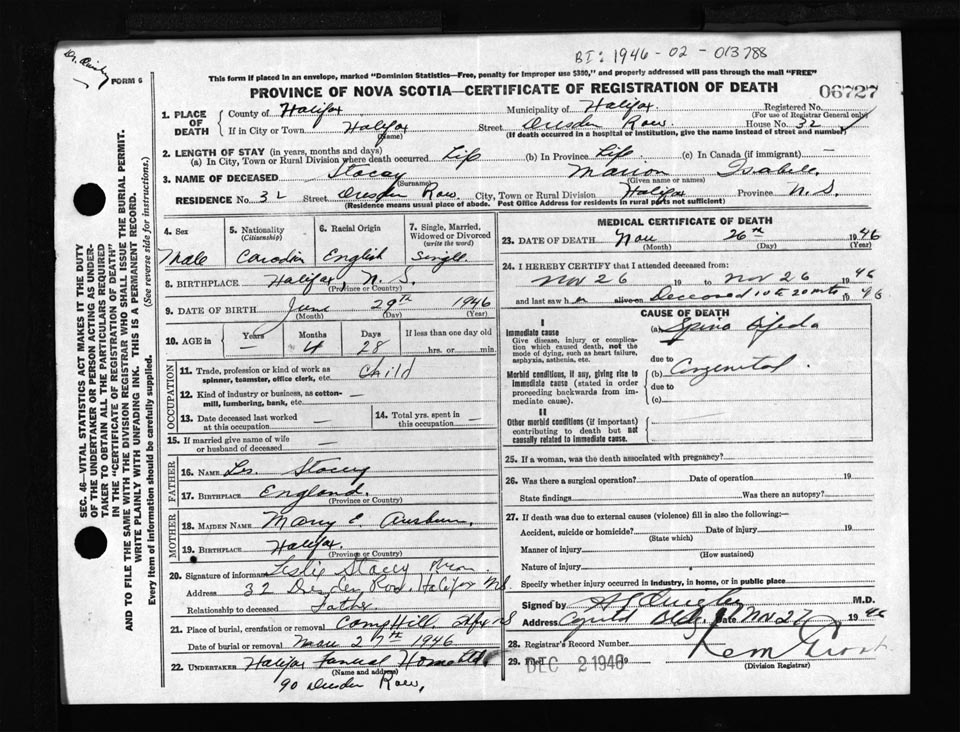 Dr. Quigley
BI: 1946-02-013788
FORM 6
This form if placed in an envelope, marked "Dominion Statistics—Free, penalty for improper use $300," and properly addressed will pass through the mail "FREE"
PROVINCE OF NOVA SCOTIA—CERTIFICATE OF REGISTRATION OF DEATH
06727
SEC. 46—VITAL STATISTICS ACT MAKES IT THE DUTY
OF THE UNDERTAKER OR PERSON ACTING AS UNDER-
TAKER TO OBTAIN ALL THE PARTICULARS REQUIRED
IN THE "CERTIFICATE OF REGISTRATION OF DEATH"
AND TO FILE THE SAME WITH THE DIVISION REGISTRAR WHO SHALL ISSUE THE BURIAL PERMIT.
WRITE PLAINLY WITH UNFADING INK. THIS IS A PERMANENT RECORD.
Every item of information should be carefully supplied. (See reverse side for instructions.)
1. PLACE OF DEATH
County of Halifax Municipality of Halifax Registered No.
(For use of Registrar General only)
If in City or Town Halifax Street Dresden Row. House No. 32
(Name) (If death occurred in a hospital or institution, give the name instead of street and number)
2. LENGTH OF STAY (in years, months and days)
(a) In City, Town or Rural Division where death occurred Life (b) In Province Life (c) In Canada (if immigrant) —
3. NAME OF DECEASED Stacey Marion Isabell.
(Surname) (Given name or names)
RESIDENCE No. 32 Street Dresden Row. City, Town or Rural Division Halifax Province N.S
(Residence means usual place of abode. Post Office Address for residents in rural parts not sufficient)
4. Sex 5. Nationality (Citizenship) 6. Racial Origin 7. Single, Married, Widowed or Divorced (write the word)
Male Canadin English Single.
8. BIRTHPLACE Halifax, N.S.
(Province or Country)
9. DATE OF BIRTH June 29th 1946
(Month) (Day) (Year)
10. AGE in Years Months Days If less than one day old
— 4 28 hrs. or min.
OCCUPATION
11. Trade, profession or kind of work as spinner, teamster, office clerk, etc. Child
12. Kind of industry or business, as cotton-mill, lumbering, bank, etc. —
13. Date deceased last worked at this occupation — 14. Total yrs. spent in this occupation —
15. If married give name of wife or husband of deceased
FATHER
16. NAME Les. Stacey
17. BIRTHPLACE England.
(Province or Country)
MOTHER
18. MAIDEN NAME Mary E.
19. BIRTHPLACE Halifax.
(Province or Country)
20. Signature of informant Leslie Stacey
Address 32 Dresden Row. Halifax NS
Relationship to deceased Father.
21. Place of burial, cremation or removal Camp Hill. Hfx NS
Date of burial or removal Nov 27th 1946
22. UNDERTAKER Halifax Funeral Home
(Name and address)
90 Dresden Row,
MEDICAL CERTIFICATE OF DEATH
23. DATE OF DEATH Nov 26th 1946
(Month) (Day) (Year)
24. I HEREBY CERTIFY that I attended deceased from:
Nov 26 19 to Nov 26 1946
and last saw her alive on Deceased 10 to 20 mts 1946
CAUSE OF DEATH
I
Immediate cause
Give disease, injury or complication which caused death, not the mode of dying, such as heart failure, asphyxia, asthenia, etc.
(a) Spina Bifida
due to
Morbid conditions, if any, giving rise to immediate cause (stated in order proceeding backwards from immediate cause).
(b) Congenital
due to
(c)
II
Other morbid conditions (if important) contributing to death but not causally related to immediate cause.
25. If a woman, was the death associated with pregnancy?
26. Was there a surgical operation? Date of operation 19
State findings Was there an autopsy?
27. If death was due to external causes (violence) fill in also the following:—
Accident, suicide or homicide? Date of injury 19
(State which)
Manner of injury
(How sustained)
Nature of injury
Specify whether injury occurred in industry, in home, or in public place
Signed by Quigley M.D.
Address Bldg. Date Nov 27 1946
28. Registrar's Record Number
29. Filed DEC 2 1946 19
(Division Registrar)